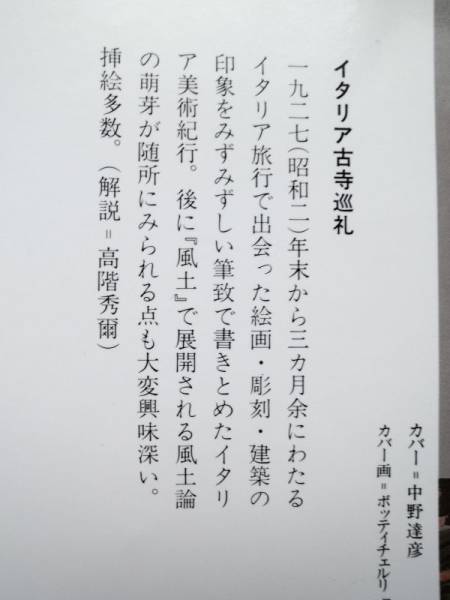 イタリア古寺巡礼
一九二七(昭和二)年末から三カ月余にわたる
イタリア旅行で出会った絵画・彫刻・建築の
印象をみずみずしい筆致で書きとめたイタリ
ア美術紀行。後に『風土』で展開される風土論
の萌芽が随所にみられる点も大変興味深い。
挿絵多数。(解説=高階秀爾)
カバー=中野達彦
カバー画=ボッティチェルリ